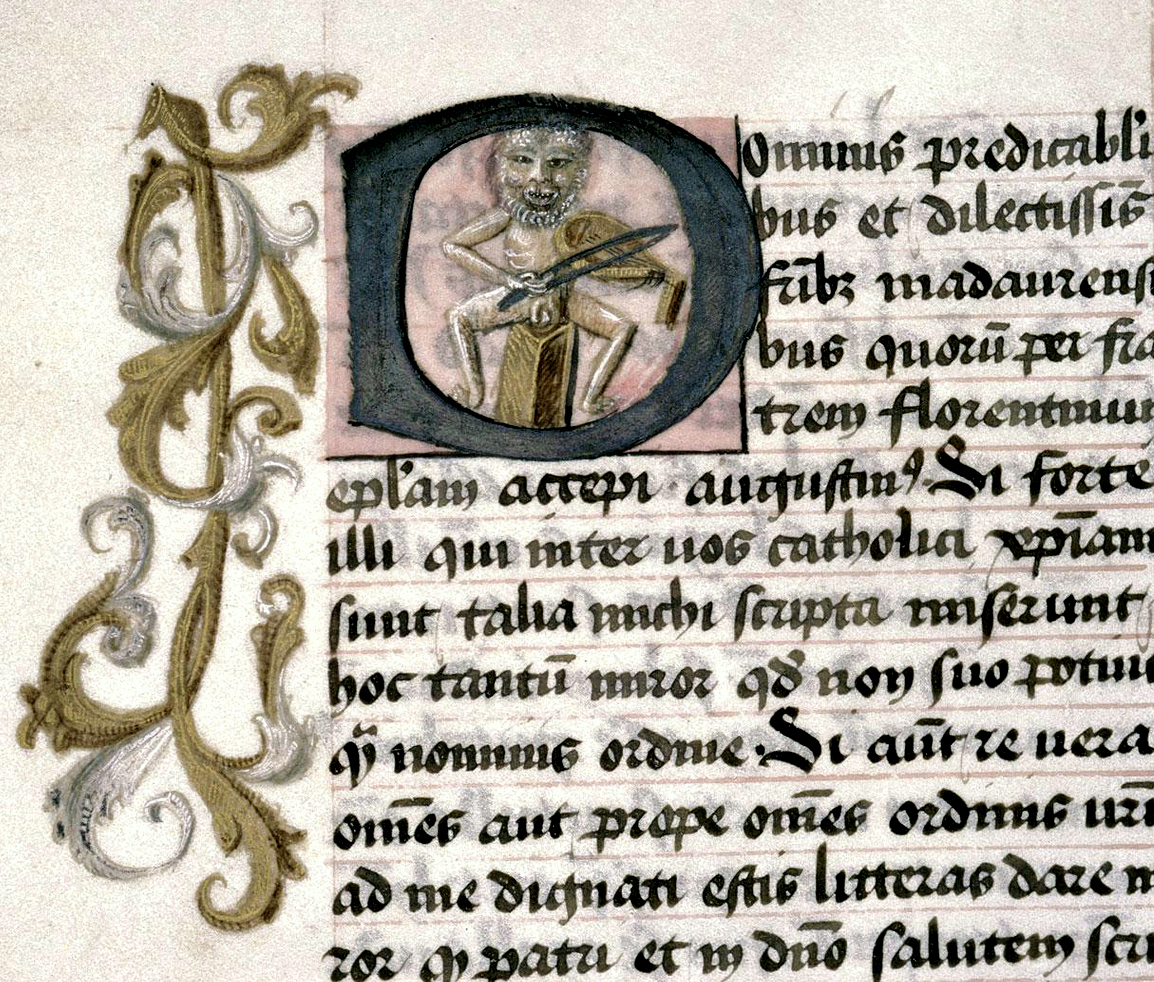 Dominis predicabili
bus et dilectissīs
frīb&#42; madaurensi
bus quorū per fra
trem florentinum
epl'am accepi augustin⁹. Si forte
illi qui inter uos catholici xp̄iani
sunt talia michi scripta miserunt
hoc tantū miror qd̄ non suo potiu
nominis ordine. Si aūt re uera
om̄es aut prope om̄es ordinis urī
ad me dignati estis litteras dare m
ror patri et in dn̄o salutem scri